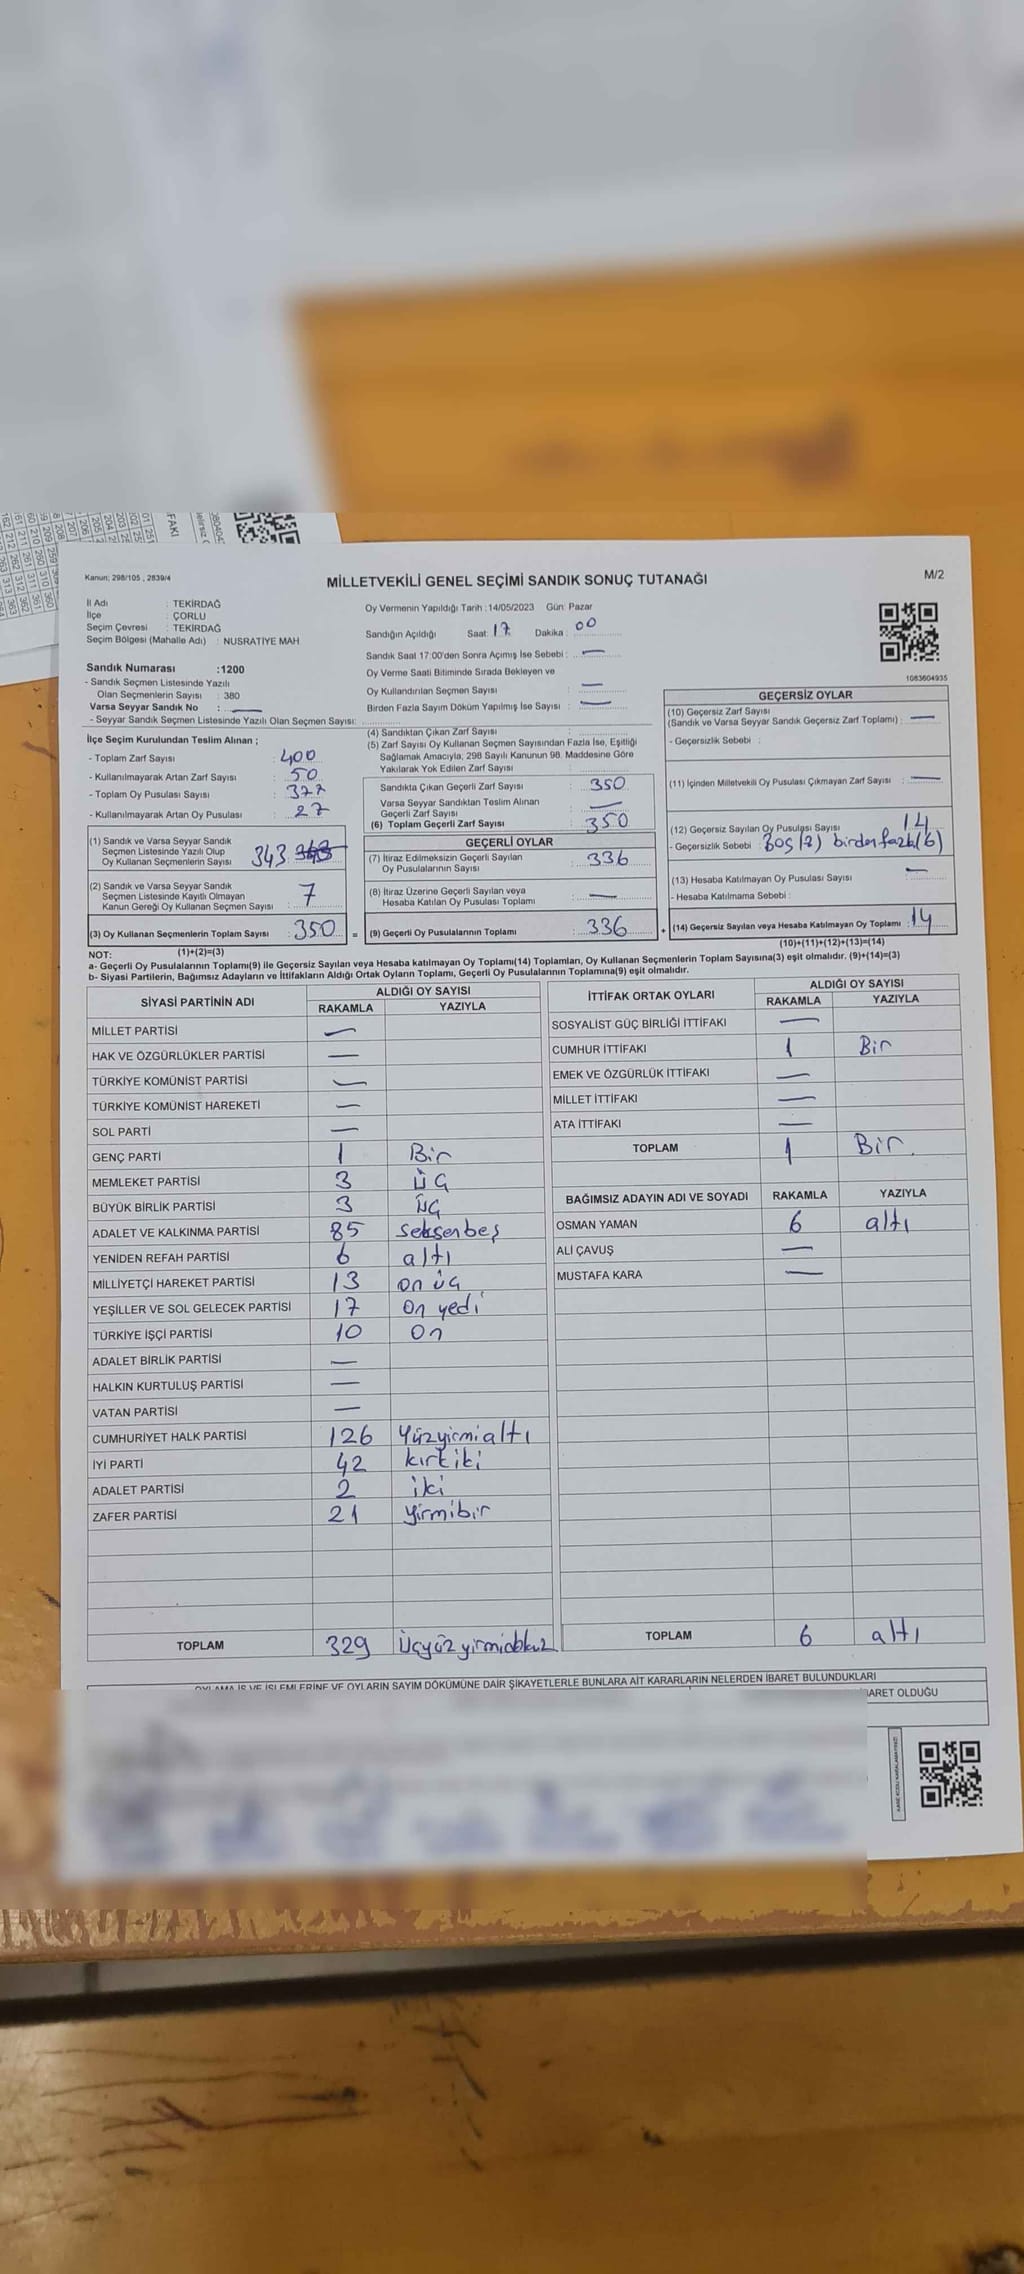 Kanun; 298/105 , 2839/4
MİLLETVEKİLİ GENEL SEÇİMİ SANDIK SONUÇ TUTANAĞI
M/2
İl Adı : TEKİRDAĞ
İlçe : ÇORLU
Seçim Çevresi : TEKİRDAĞ
Seçim Bölgesi (Mahalle Adı) : NUSRATİYE MAH
Sandık Numarası :1200
- Sandık Seçmen Listesinde Yazılı
Olan Seçmenlerin Sayısı : 380
Varsa Seyyar Sandık No : —
- Seyyar Sandık Seçmen Listesinde Yazılı Olan Seçmen Sayısı:
Oy Vermenin Yapıldığı Tarih :14/05/2023 Gün: Pazar
Sandığın Açıldığı Saat: 17 Dakika : 00
Sandık Saat 17:00'den Sonra Açımış İse Sebebi : —
Oy Verme Saati Bitiminde Sırada Bekleyen ve
Oy Kullandırılan Seçmen Sayısı : —
Birden Fazla Sayım Döküm Yapılmış İse Sayısı : —
1083604935
İlçe Seçim Kurulundan Teslim Alınan ;
- Toplam Zarf Sayısı : 400
- Kullanılmayarak Artan Zarf Sayısı : 50
- Toplam Oy Pusulası Sayısı : 377
- Kullanılmayarak Artan Oy Pusulası : 27
(1) Sandık ve Varsa Seyyar Sandık
Seçmen Listesinde Yazılı Olup
Oy Kullanan Seçmenlerin Sayısı 343
(2) Sandık ve Varsa Seyyar Sandık
Seçmen Listesinde Kayıtlı Olmayan
Kanun Gereği Oy Kullanan Seçmen Sayısı : 7
(3) Oy Kullanan Seçmenlerin Toplam Sayısı : 350 =
(1)+(2)=(3)
(4) Sandıktan Çıkan Zarf Sayısı :
(5) Zarf Sayısı Oy Kullanan Seçmen Sayısından Fazla İse, Eşitliği
Sağlamak Amacıyla, 298 Sayılı Kanunun 98. Maddesine Göre
Yakılarak Yok Edilen Zarf Sayısı :
Sandıkta Çıkan Geçerli Zarf Sayısı : 350
Varsa Seyyar Sandıktan Teslim Alınan
Geçerli Zarf Sayısı : —
(6) Toplam Geçerli Zarf Sayısı : 350
GEÇERLİ OYLAR
(7) İtiraz Edilmeksizin Geçerli Sayılan
Oy Pusulalarının Sayısı : 336
(8) İtiraz Üzerine Geçerli Sayılan veya
Hesaba Katılan Oy Pusulası Toplamı : —
(9) Geçerli Oy Pusulalarının Toplamı : 336 +
GEÇERSİZ OYLAR
(10) Geçersiz Zarf Sayısı
(Sandık ve Varsa Seyyar Sandık Geçersiz Zarf Toplamı) : —
- Geçersizlik Sebebi :
(11) İçinden Milletvekili Oy Pusulası Çıkmayan Zarf Sayısı : —
(12) Geçersiz Sayılan Oy Pusulası Sayısı 14
- Geçersizlik Sebebi : Boş (8) birden fazla (6)
(13) Hesaba Katılmayan Oy Pusulası Sayısı —
- Hesaba Katılmama Sebebi :
(14) Geçersiz Sayılan veya Hesaba Katılmayan Oy Toplamı : 14
(10)+(11)+(12)+(13)=(14)
NOT:
a- Geçerli Oy Pusulalarının Toplamı(9) ile Geçersiz Sayılan veya Hesaba katılmayan Oy Toplamı(14) Toplamları, Oy Kullanan Seçmenlerin Toplam Sayısına(3) eşit olmalıdır. (9)+(14)=(3)
b- Siyasi Partilerin, Bağımsız Adayların ve İttifakların Aldığı Ortak Oyların Toplamı, Geçerli Oy Pusulalarının Toplamına(9) eşit olmalıdır.
SİYASİ PARTİNİN ADI ALDIĞI OY SAYISI
RAKAMLA YAZIYLA
MİLLET PARTİSİ —
HAK VE ÖZGÜRLÜKLER PARTİSİ —
TÜRKİYE KOMÜNİST PARTİSİ —
TÜRKİYE KOMÜNİST HAREKETİ —
SOL PARTİ —
GENÇ PARTİ 1 Bir
MEMLEKET PARTİSİ 3 üç
BÜYÜK BİRLİK PARTİSİ 3 üç
ADALET VE KALKINMA PARTİSİ 85 seksenbeş
YENİDEN REFAH PARTİSİ 6 altı
MİLLİYETÇİ HAREKET PARTİSİ 13 on üç
YEŞİLLER VE SOL GELECEK PARTİSİ 17 On yedi
TÜRKİYE İŞÇİ PARTİSİ 10 On
ADALET BİRLİK PARTİSİ —
HALKIN KURTULUŞ PARTİSİ —
VATAN PARTİSİ —
CUMHURİYET HALK PARTİSİ 126 Yüzyirmialtı
İYİ PARTİ 42 kırkiki
ADALET PARTİSİ 2 iki
ZAFER PARTİSİ 21 yirmibir
TOPLAM 329 üçyüzyirmidokuz
İTTİFAK ORTAK OYLARI ALDIĞI OY SAYISI
RAKAMLA YAZIYLA
SOSYALİST GÜÇ BİRLİĞİ İTTİFAKI —
CUMHUR İTTİFAKI 1 Bir
EMEK VE ÖZGÜRLÜK İTTİFAKI —
MİLLET İTTİFAKI —
ATA İTTİFAKI —
TOPLAM 1 Bir.
BAĞIMSIZ ADAYIN ADI VE SOYADI RAKAMLA YAZIYLA
OSMAN YAMAN 6 altı
ALİ ÇAVUŞ —
MUSTAFA KARA —
TOPLAM 6 altı
OYLAMA İŞ VE İŞLEMLERİNE VE OYLARIN SAYIM DÖKÜMÜNE DAİR ŞİKAYETLERLE BUNLARA AİT KARARLARIN NELERDEN İBARET BULUNDUKLARI
BARET OLDUĞU